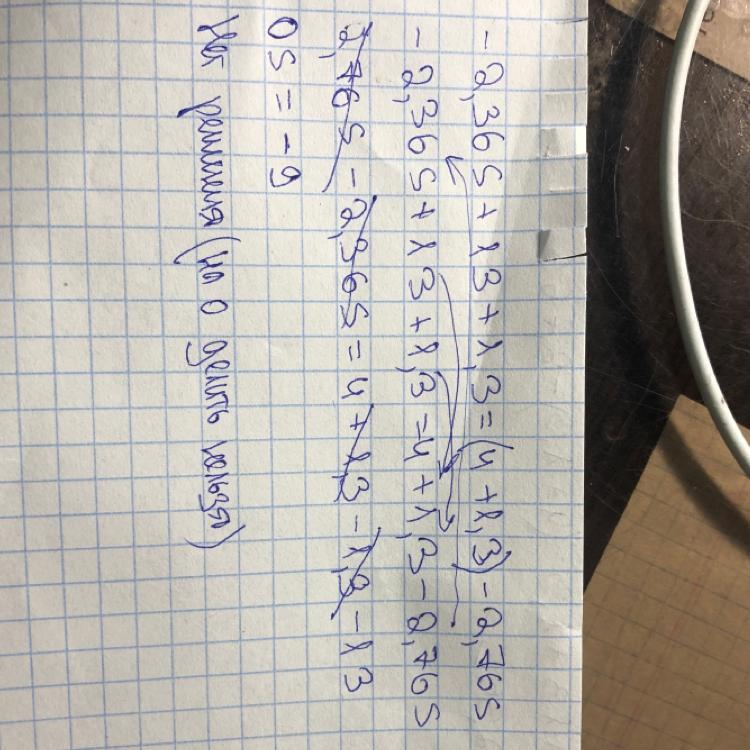 -2,36S+13+1,3=(4+1,3)-2,76S
-2,36S+13+1,3=4+1,3-2,76S
2,76S-2,36S=4+1,3-1,3-13
0S=-9
Нет решения (на 0 делить нельзя)